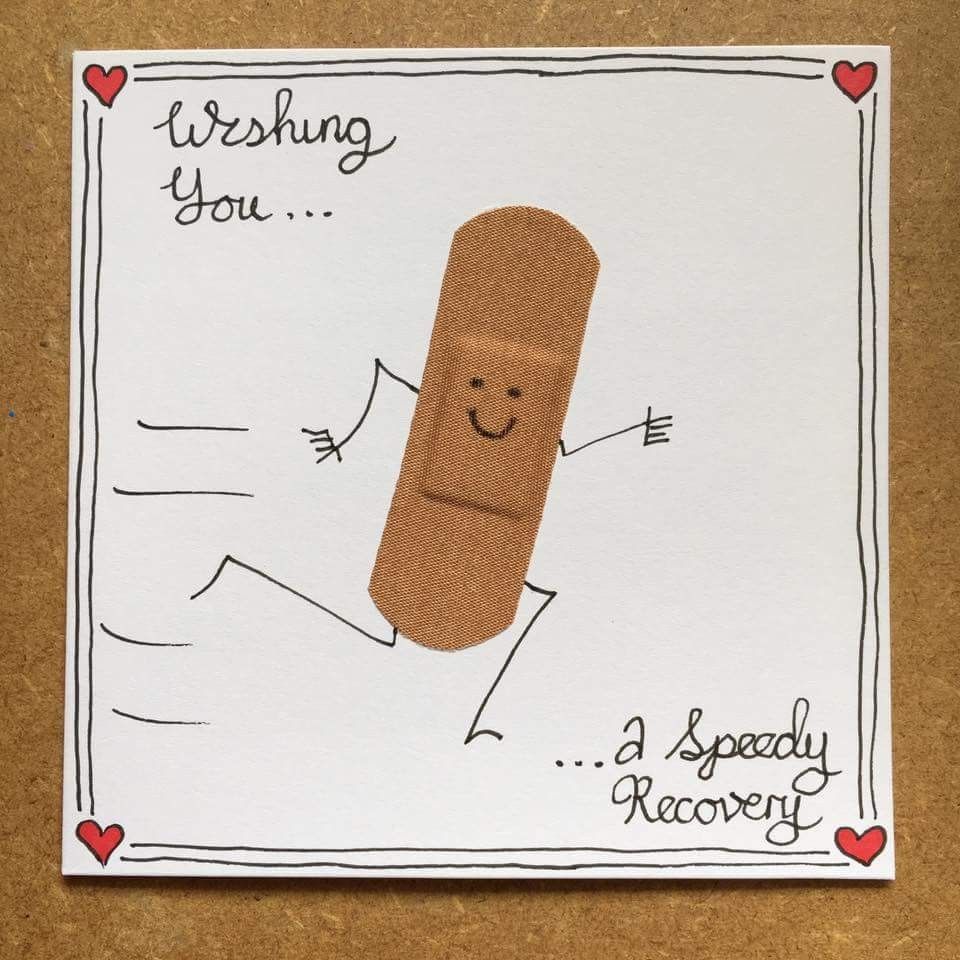 Wishing
You...
...a Speedy
Recovery